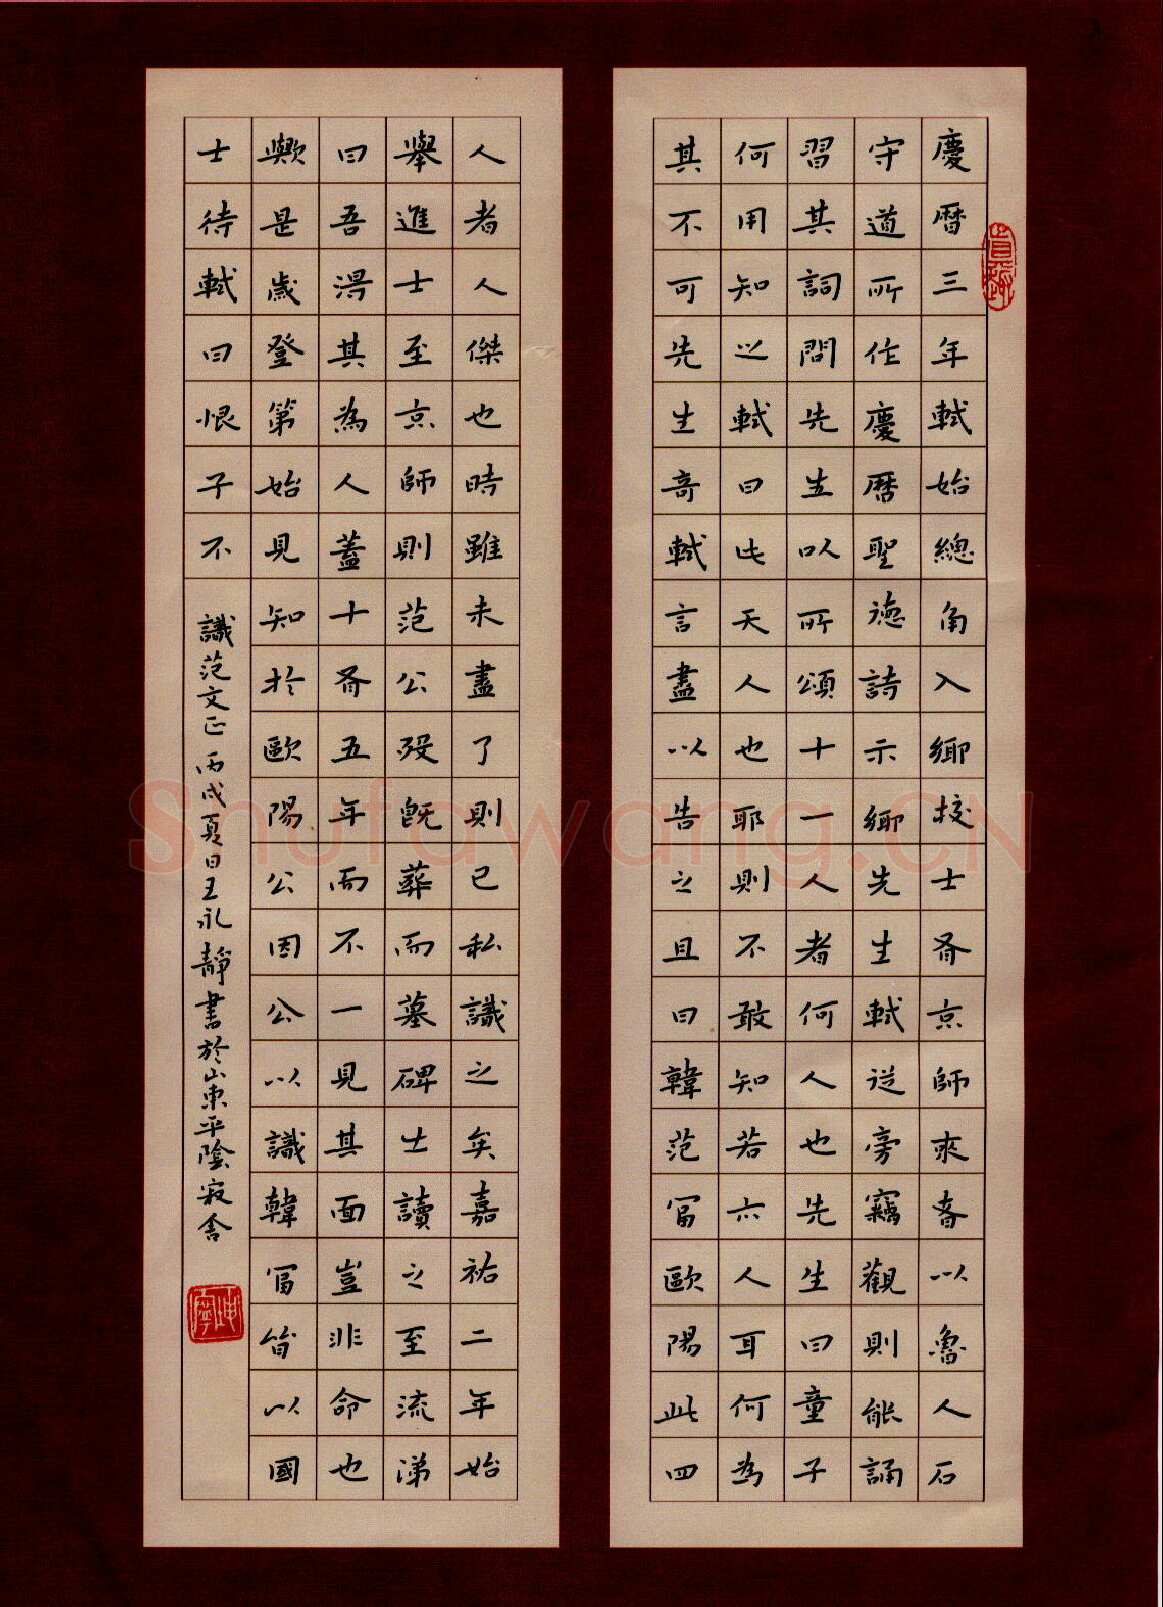 慶暦三年軾始總角入鄉校士有京師來者以魯人石
守道所作慶暦聖德詩示鄉先生軾從旁竊觀則能誦
習其詞問先生以所頌十一人者何人也先生曰童子
何用知之軾曰此天人也耶則不敢知若亦人耳何為
其不可先生奇軾言盡以告之且曰韓范冨歐陽此四
人者人傑也時雖未盡了則已私識之矣嘉祐二年始
舉進士至京師則范公歿既葬而墓碑士讀之至流涕
曰吾得其為人蓋十有五年而不一見其面豈非命也
歟是歲登第始見知於歐陽公因公以識韓冨皆以國
士待軾曰恨子不識范文正 丙戌夏日王永靜書於山東平陰寂舍
Shufawang.CN